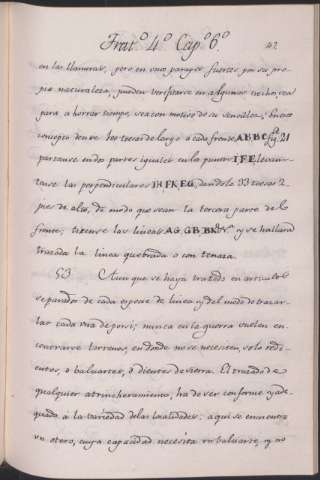 Trat.º 4.º Cap.º 6.º
42
en las llanuras, pero en unos parages fuertes por su pro-
pia naturaleza, pueden verificarse en algunos trechos, sea
para ahorrar tiempo, sea con motivo de su sencillez; En este
concepto dense los toesas de largo a cada frente AB, BC, fig. 21
partanse en dos partes iguales en los puntos I F E, levan-
tense las perpendiculares IH, FK, EG, dandolo 33 toesas 2
pies de alto, de modo que sean la tercera parte del
frente; tirense las lineas AG, GB, BK, &c. y se hallará
trazada la linea quebrada o con tenaza.
53 Aunque se haya tratado en articulos
separados de cada especie de linea y del modo de trazar-
las cada una de por si; nunca en la guerra suelen en-
contrarse terrenos, en donde no se necesiten, solo redi-
entes, o baluartes, ó dientes de sierra. El trazado de
qualquier atrincheramiento, ha de ser conforme y ade-
quado a la variedad de las localidades: aqui se encuentra
un otero, cuya capacidad necesita un baluarte, y no